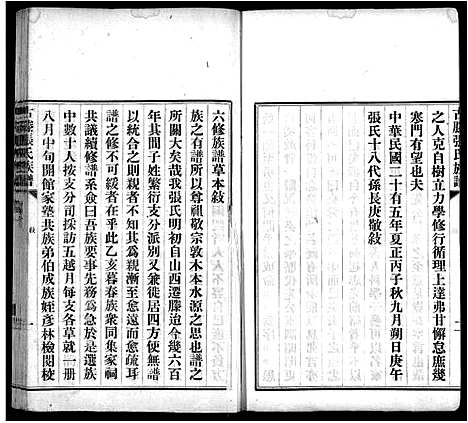 古滕張氏族譜
之人克自樹立力學修行循理上達弗甘懈怠庶幾
寒門有望也夫
中華民國二十有五年夏正丙子秋九月朔日庚午
張氏十八代孫長庚敬敍
六修族譜草本敍
族之有譜所以尊祖敬宗敦木本水源之思也譜之
所關大矣哉我張氏明初自山西遷滕迨今幾六百
年其間子姓繁衍支分派別又兼徙居四方使無譜
以統合之則非不知其為親漸至愈而愈疏耳
譜之修不可緩者在乎此乙亥暮春族衆同集家祠
共議續修譜系僉曰吾族要事先務為急於是選族
中數十人按支分司採訪五越月每支各草就一册
八月中旬開館家塾共族弟伯成族姪彥林檢閱校
古滕張氏族譜
敍
一